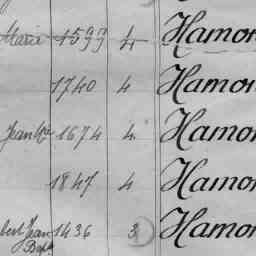 Marie 1599 4 Hamon
1740 4 Hamon
Jean 1674 4 Hamon
1847 4 Hamon
bert Jean 1436 3 Hamon
Bapte